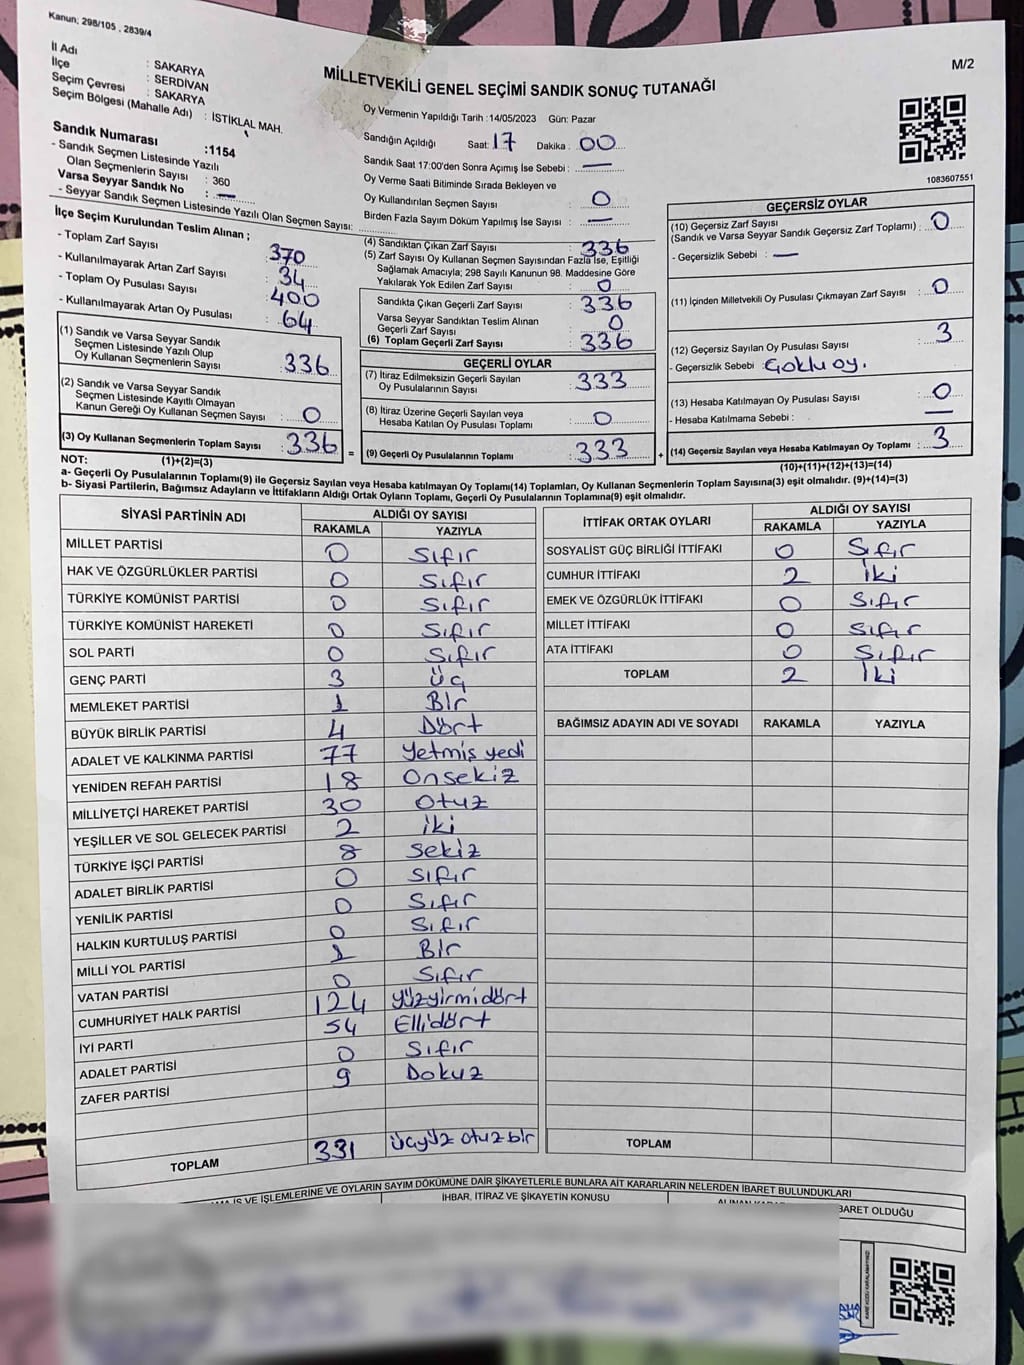 Kanun; 298/105 , 2839/4
M/2
İl Adı : SAKARYA
İlçe : SERDİVAN
Seçim Çevresi : SAKARYA
Seçim Bölgesi (Mahalle Adı) : İSTİKLAL MAH.
MİLLETVEKİLİ GENEL SEÇİMİ SANDIK SONUÇ TUTANAĞI
Oy Vermenin Yapıldığı Tarih :14/05/2023 Gün: Pazar
Sandığın Açıldığı Saat: 17 Dakika : 00
Sandık Saat 17:00'den Sonra Açımış İse Sebebi : —
Oy Verme Saati Bitiminde Sırada Bekleyen ve
Oy Kullandırılan Seçmen Sayısı : 0
Birden Fazla Sayım Döküm Yapılmış İse Sayısı : —
1083607551
Sandık Numarası :1154
- Sandık Seçmen Listesinde Yazılı
Olan Seçmenlerin Sayısı : 360
Varsa Seyyar Sandık No : —
- Seyyar Sandık Seçmen Listesinde Yazılı Olan Seçmen Sayısı:
İlçe Seçim Kurulundan Teslim Alınan ;
- Toplam Zarf Sayısı : 370
- Kullanılmayarak Artan Zarf Sayısı : 34
- Toplam Oy Pusulası Sayısı : 400
- Kullanılmayarak Artan Oy Pusulası : 64
(1) Sandık ve Varsa Seyyar Sandık
Seçmen Listesinde Yazılı Olup
Oy Kullanan Seçmenlerin Sayısı : 336
(2) Sandık ve Varsa Seyyar Sandık
Seçmen Listesinde Kayıtlı Olmayan
Kanun Gereği Oy Kullanan Seçmen Sayısı : 0
(3) Oy Kullanan Seçmenlerin Toplam Sayısı : 336
(4) Sandıktan Çıkan Zarf Sayısı : 336
(5) Zarf Sayısı Oy Kullanan Seçmen Sayısından Fazla İse, Eşitliği
Sağlamak Amacıyla; 298 Sayılı Kanunun 98. Maddesine Göre
Yakılarak Yok Edilen Zarf Sayısı : 0
Sandıkta Çıkan Geçerli Zarf Sayısı : 336
Varsa Seyyar Sandıktan Teslim Alınan
Geçerli Zarf Sayısı : 0
(6) Toplam Geçerli Zarf Sayısı : 336
GEÇERLİ OYLAR
(7) İtiraz Edilmeksizin Geçerli Sayılan
Oy Pusulalarının Sayısı : 333
(8) İtiraz Üzerine Geçerli Sayılan veya
Hesaba Katılan Oy Pusulası Toplamı : 0
= (9) Geçerli Oy Pusulalarının Toplamı : 333 +
GEÇERSİZ OYLAR
(10) Geçersiz Zarf Sayısı
(Sandık ve Varsa Seyyar Sandık Geçersiz Zarf Toplamı) : 0
- Geçersizlik Sebebi : —
(11) İçinden Milletvekili Oy Pusulası Çıkmayan Zarf Sayısı : 0
(12) Geçersiz Sayılan Oy Pusulası Sayısı : 3
- Geçersizlik Sebebi : Çoklu oy.
(13) Hesaba Katılmayan Oy Pusulası Sayısı : 0
- Hesaba Katılmama Sebebi : —
(14) Geçersiz Sayılan veya Hesaba Katılmayan Oy Toplamı : 3
NOT: (1)+(2)=(3)
(10)+(11)+(12)+(13)=(14)
a- Geçerli Oy Pusulalarının Toplamı(9) ile Geçersiz Sayılan veya Hesaba katılmayan Oy Toplamı(14) Toplamları, Oy Kullanan Seçmenlerin Toplam Sayısına(3) eşit olmalıdır. (9)+(14)=(3)
b- Siyasi Partilerin, Bağımsız Adayların ve İttifakların Aldığı Ortak Oyların Toplamı, Geçerli Oy Pusulalarının Toplamına(9) eşit olmalıdır.
SİYASİ PARTİNİN ADI ALDIĞI OY SAYISI
RAKAMLA YAZIYLA
MİLLET PARTİSİ 0 Sıfır
HAK VE ÖZGÜRLÜKLER PARTİSİ 0 Sıfır
TÜRKİYE KOMÜNİST PARTİSİ 0 Sıfır
TÜRKİYE KOMÜNİST HAREKETİ 0 Sıfır
SOL PARTİ 0 Sıfır
GENÇ PARTİ 3 Üç
MEMLEKET PARTİSİ 1 Bir
BÜYÜK BİRLİK PARTİSİ 4 Dört
ADALET VE KALKINMA PARTİSİ 77 Yetmiş yedi
YENİDEN REFAH PARTİSİ 18 Onsekiz
MİLLİYETÇİ HAREKET PARTİSİ 30 Otuz
YEŞİLLER VE SOL GELECEK PARTİSİ 2 iki
TÜRKİYE İŞÇİ PARTİSİ 8 Sekiz
ADALET BİRLİK PARTİSİ 0 Sıfır
YENİLİK PARTİSİ 0 Sıfır
HALKIN KURTULUŞ PARTİSİ 0 Sıfır
MİLLİ YOL PARTİSİ 1 Bir
VATAN PARTİSİ 0 Sıfır
CUMHURİYET HALK PARTİSİ 124 Yüzyirmidört
İYİ PARTİ 54 Ellidört
ADALET PARTİSİ 0 Sıfır
ZAFER PARTİSİ 9 Dokuz
TOPLAM 331 Üçyüz otuz bir
İTTİFAK ORTAK OYLARI ALDIĞI OY SAYISI
RAKAMLA YAZIYLA
SOSYALİST GÜÇ BİRLİĞİ İTTİFAKI 0 Sıfır
CUMHUR İTTİFAKI 2 İki
EMEK VE ÖZGÜRLÜK İTTİFAKI 0 Sıfır
MİLLET İTTİFAKI 0 Sıfır
ATA İTTİFAKI 0 Sıfır
TOPLAM 2 İki
BAĞIMSIZ ADAYIN ADI VE SOYADI RAKAMLA YAZIYLA
TOPLAM
İŞ VE İŞLEMLERİNE VE OYLARIN SAYIM DÖKÜMÜNE DAİR ŞİKAYETLERLE BUNLARA AİT KARARLARIN NELERDEN İBARET BULUNDUKLARI
İHBAR, İTİRAZ VE ŞİKAYETİN KONUSU
OLDUĞU